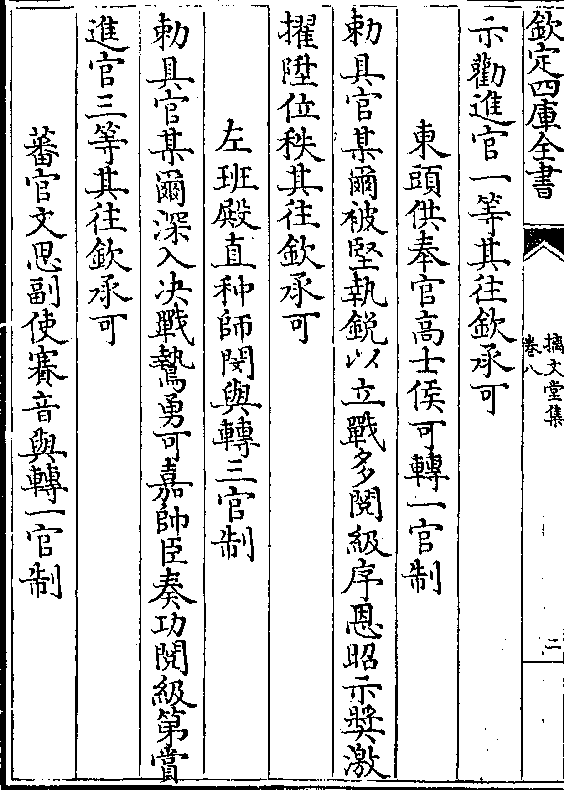 欽定四庫全書
摛文堂集
卷八
二
示勸進官一等其往欽承可
東頭供奉官高士侯可轉一官制
勅具官某爾被堅執銳以立戰多閱級序恩昭示奬激
擢陞位秩其往欽承可
左班殿直种師閔與轉三官制
勅具官某爾深入決戰鷙勇可嘉帥臣奏功閱級第賞
進官三等其往欽承可
蕃官文思副使賽音與轉一官制